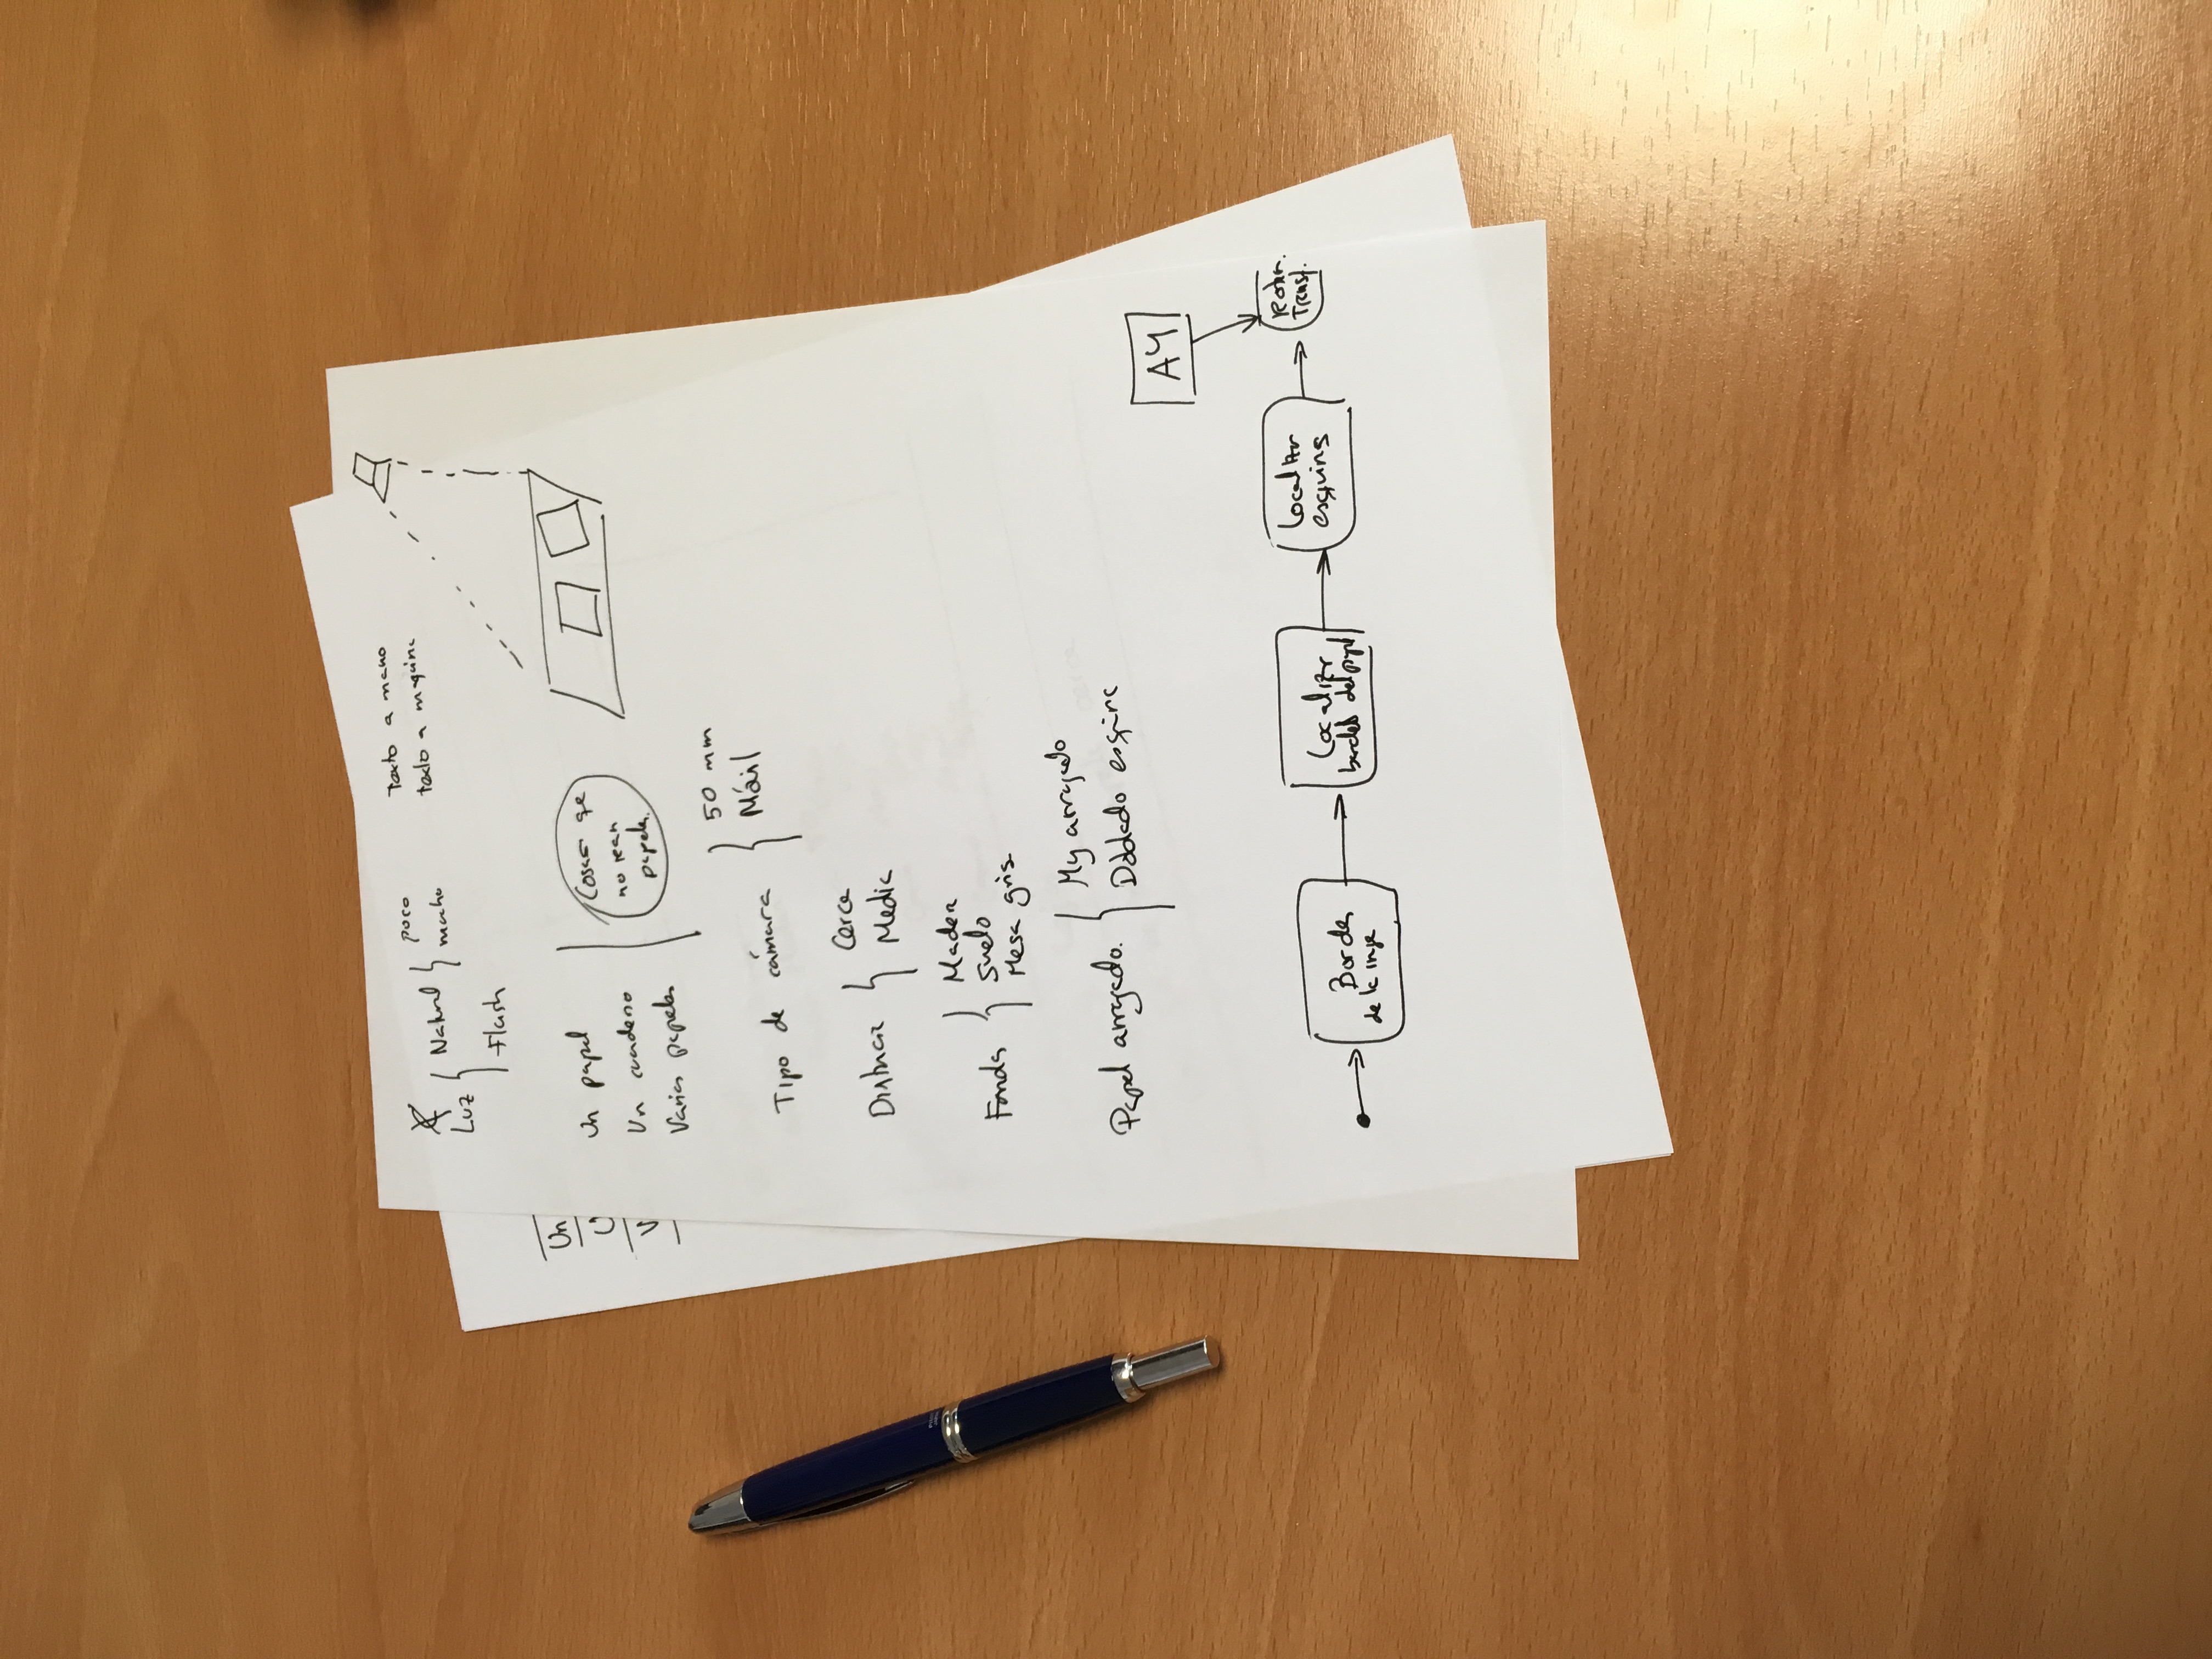 Luz
Natural
poco
mucho
Flash
Texto a mano
texto a maquina
Un papel
Un cuaderno
Varios papeles
Cosas qe
no sean
papeles.
Tipo de cámara
50 mm
Móvil
Distancia
Cerca
Media
Fondo
Madera
Suelo
Mesa gris
Papel arrugado.
Muy arrugado
Doblado esquina
A4
Bordes
de la
Localizar
bordes del papel
Localizar
esquinas
Transf.
Un